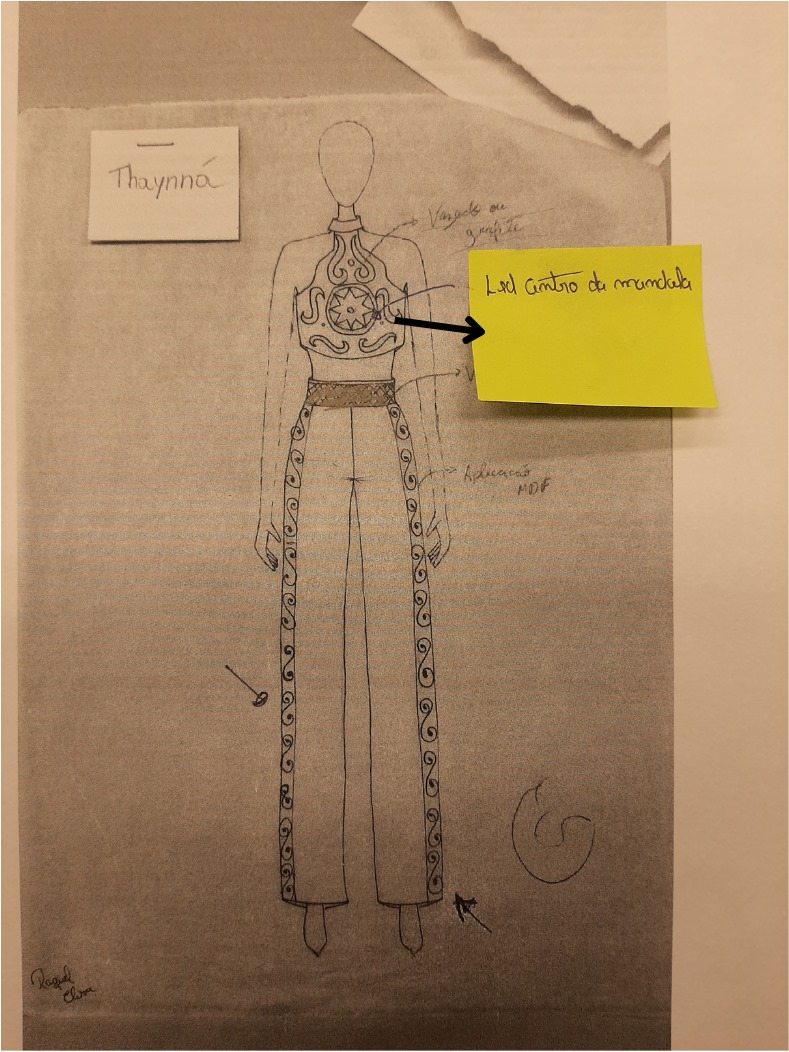 Thaynná
Vazado ou
grafite
Led centro da mandala
V
Aplicação
MDF
Raquel